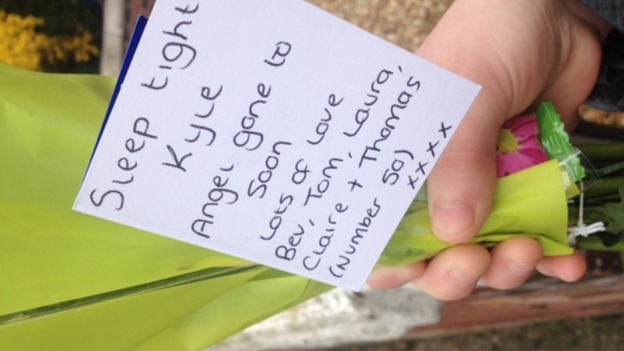 Sleep tight
Kyle
Angel gone to
Soon
Lots of Love
Bev, Tom, Laura,
Claire + Thomas
(Number 50)
xxxx